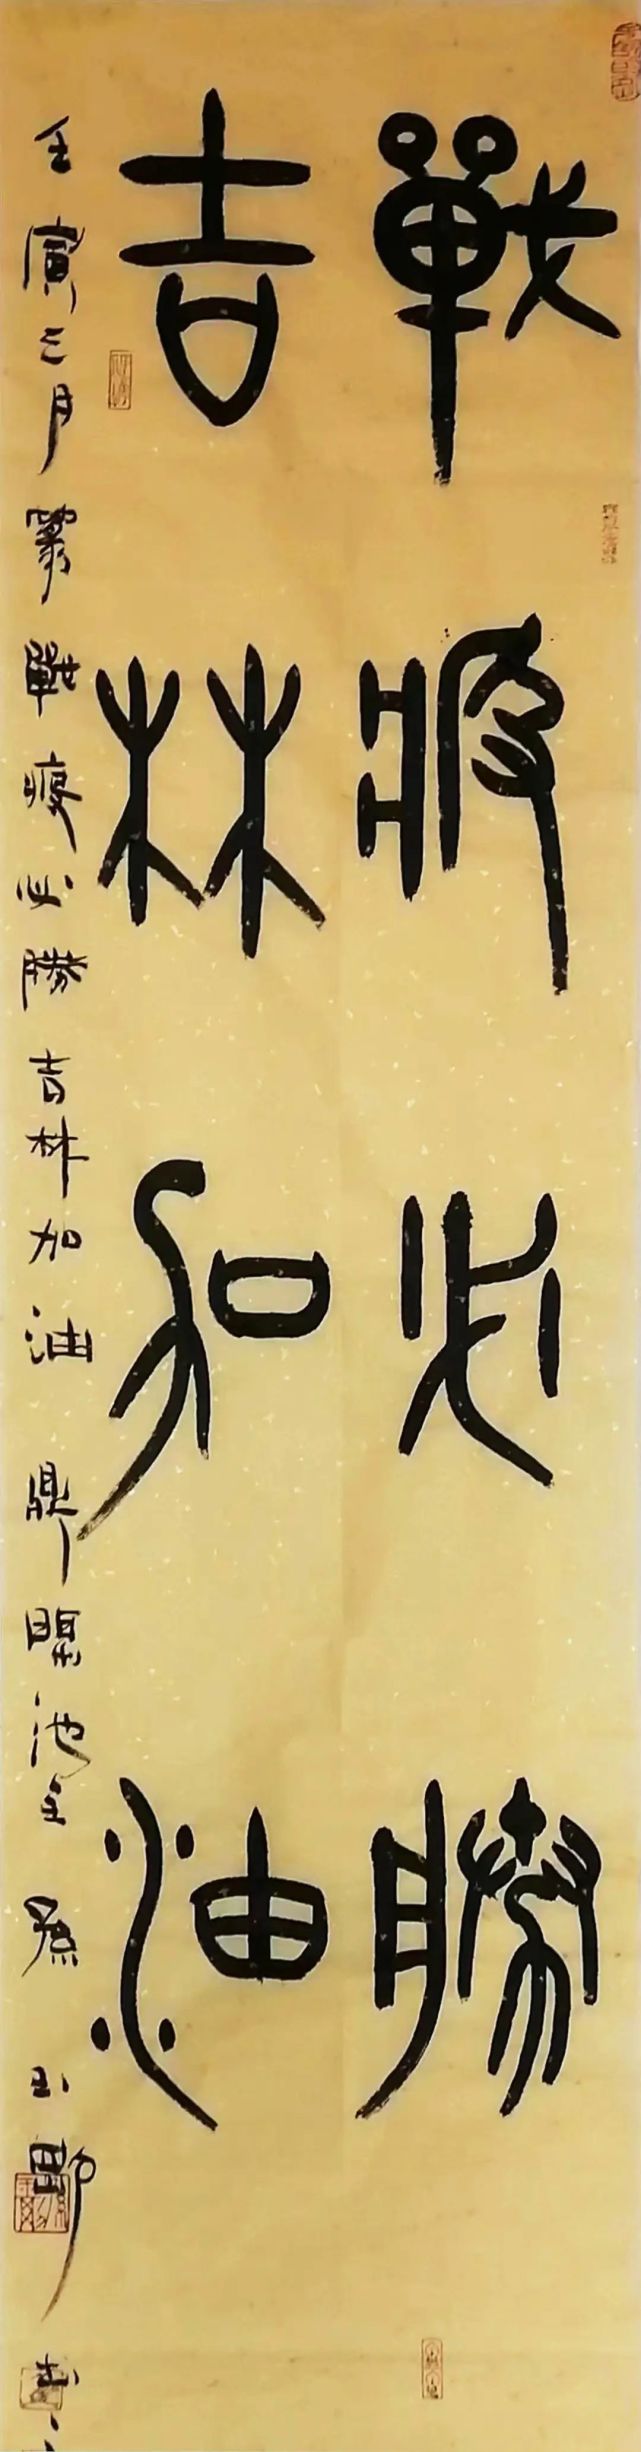 戰疫必勝
吉林加油
壬寅三月篆戰疫必勝吉林加油 鼎臨池主 孫玉